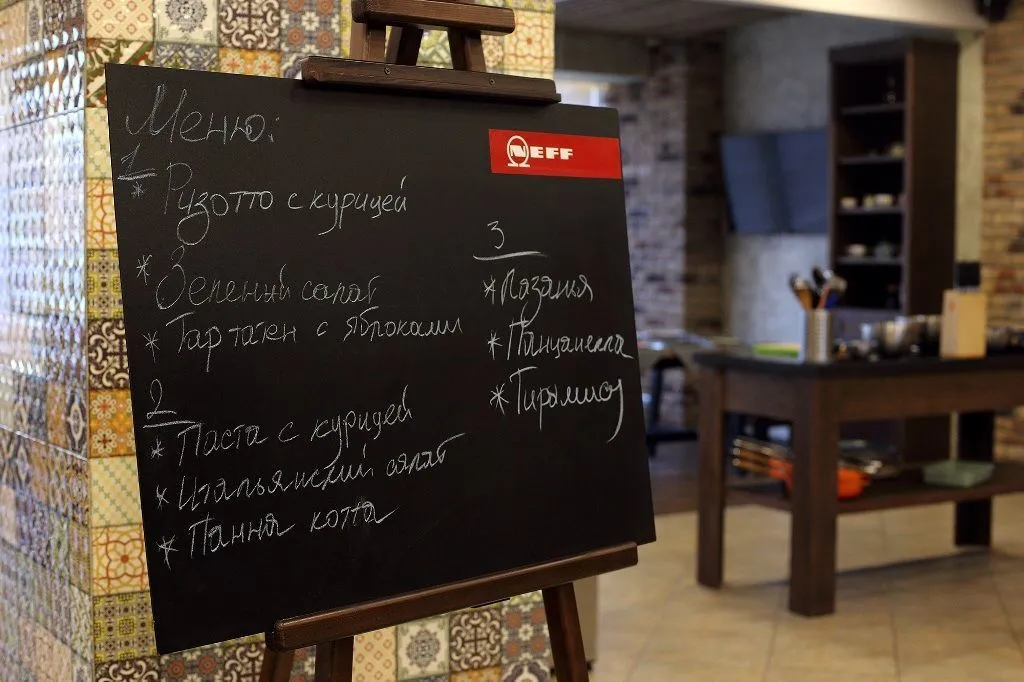 Меню:
1
* Рузотто с курицей
* Зеленый салат
* Тар татен с яблоками
2
* Паста с курицей
* Итальянский салат
* Панна котта
NEFF
3
* Лазанья
* Панцанелла
* Тирамису